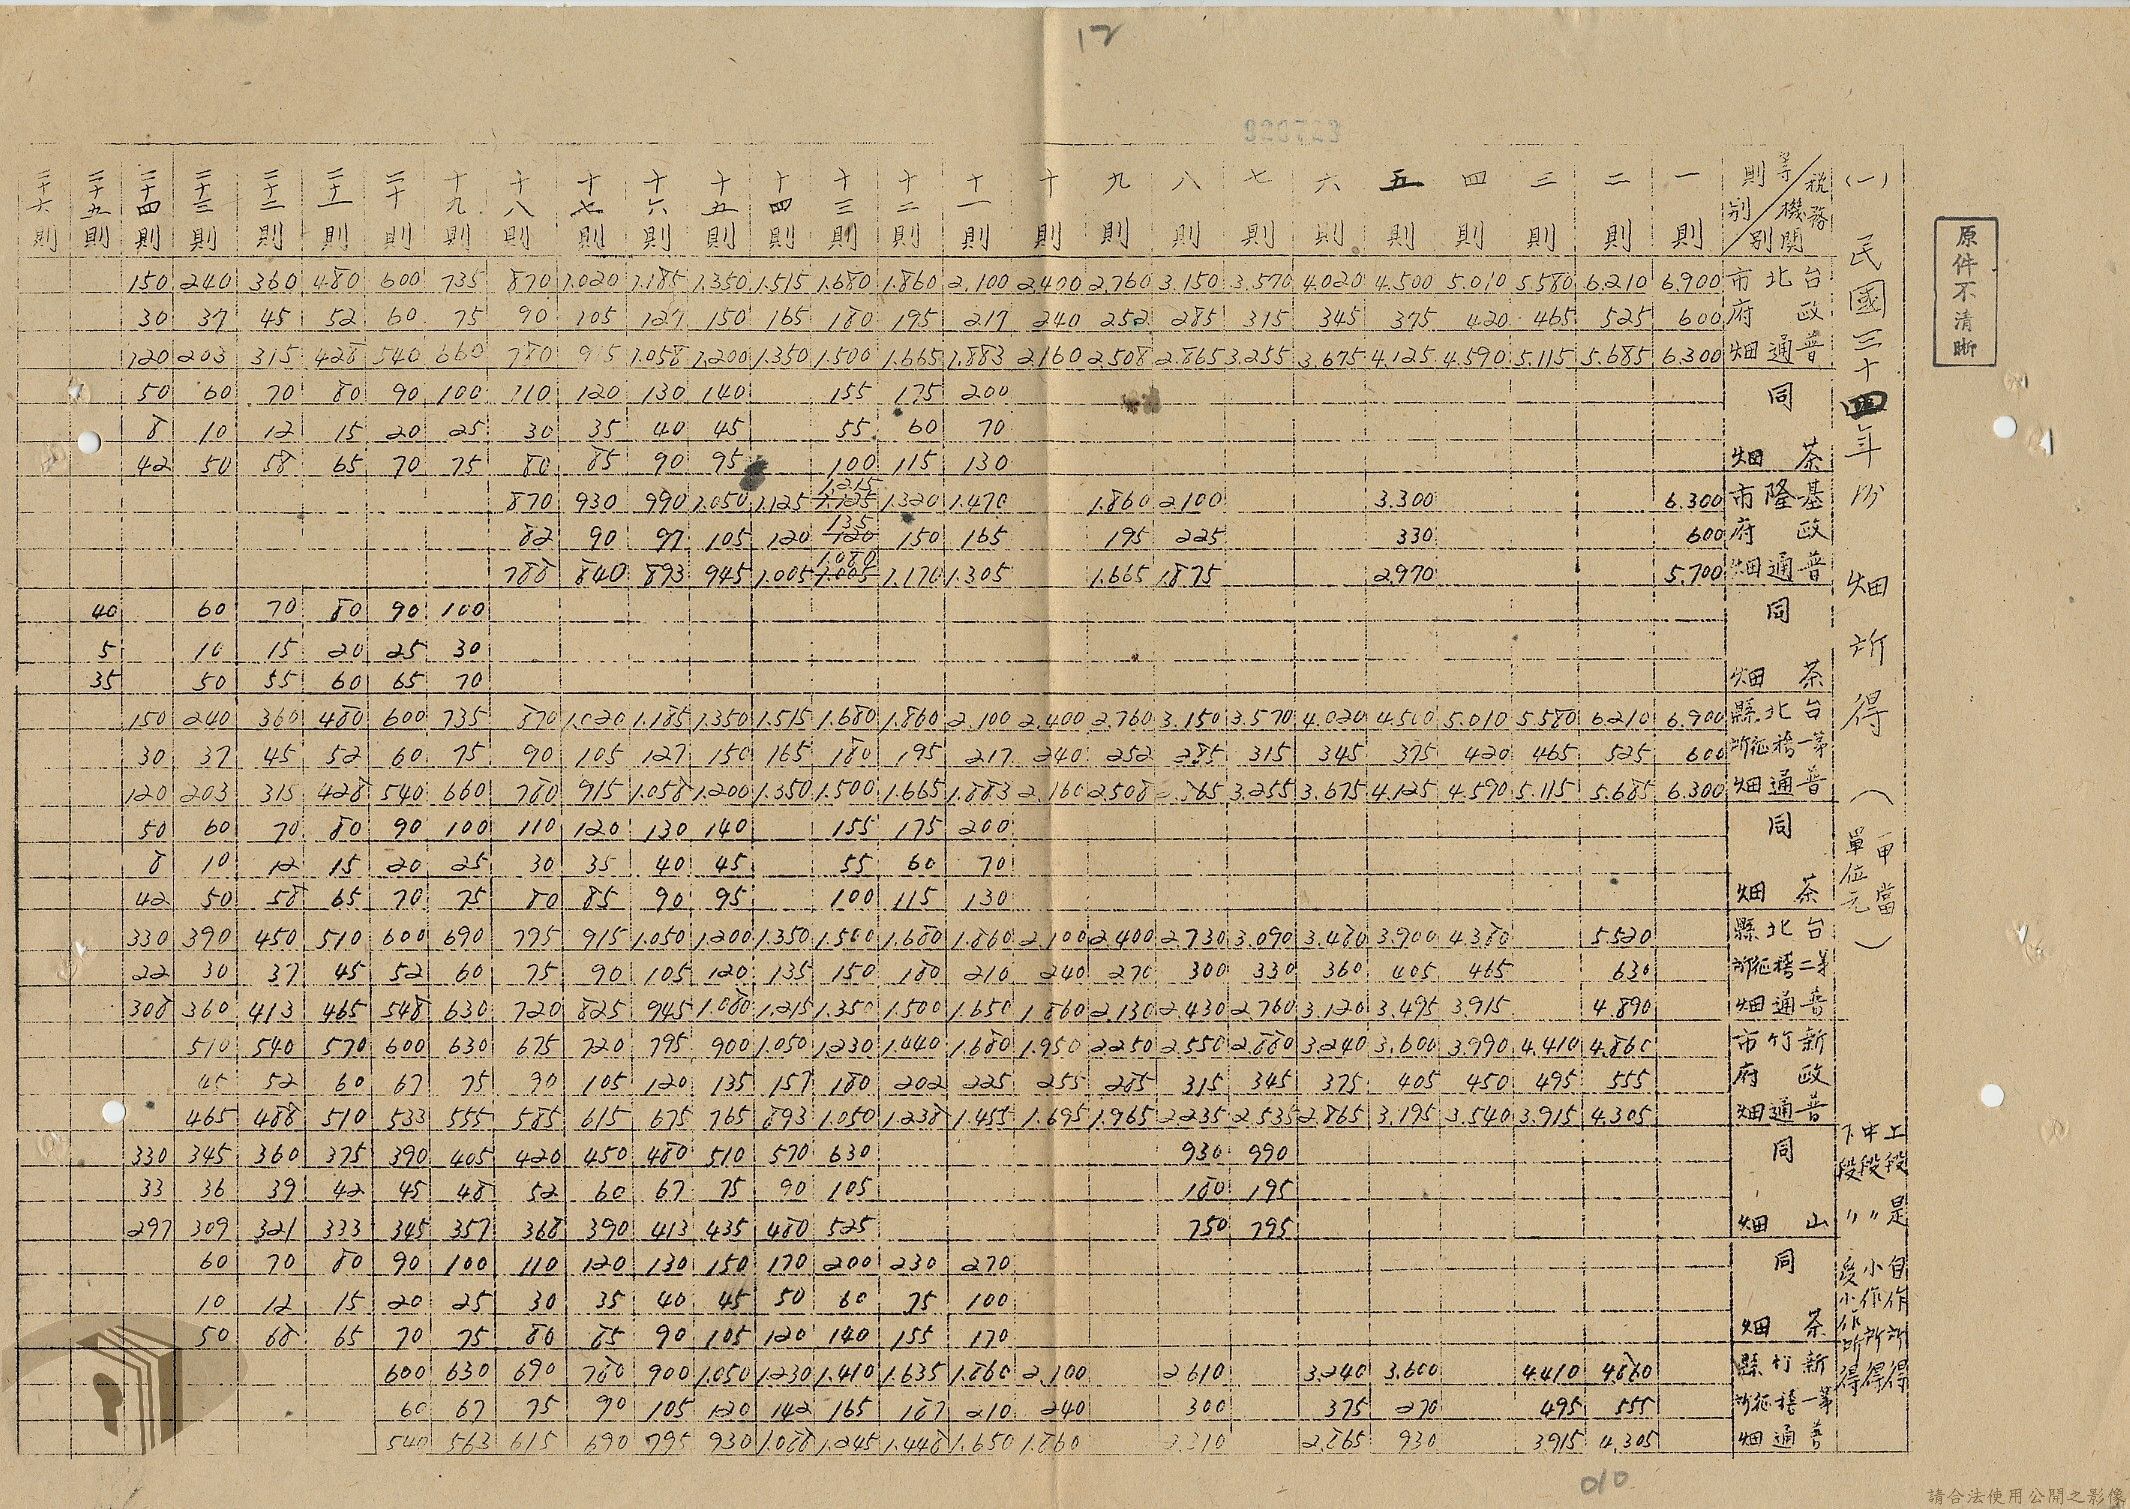 17
920723
原件不清晰
(一) 民國三十四年分畑所得 (一甲當 單位元)
上段是自作所得
中段〃小作所得
下段〃受小作所得
稅務機關別 等則別 一則 二則 三則 四則 五則 六則 七則 八則 九則 十則 十一則 十二則 十三則 十四則 十五則 十六則 十七則 十八則 十九則 二十則 二十一則 二十二則 二十三則 二十四則 二十五則 二十六則
台北市 6.900 6.210 5.580 5.010 4.500 4.020 3.570 3.150 2.760 2.400 2.100 1.860 1.680 1.515 1.350 1.185 1.020 870 735 600 480 360 240 150
政府 600 525 465 420 375 345 315 285 252 240 217 195 180 165 150 127 105 90 75 60 52 45 37 30
普通畑 6.300 5.685 5.115 4.590 4.125 3.675 3.255 2.865 2.508 2.160 1.883 1.665 1.500 1.350 1.200 1.058 915 780 660 540 428 315 203 120
同 200 175 155 140 130 120 110 100 90 80 70 60 50
70 60 55 45 40 35 30 25 20 15 12 10 8
茶畑 130 115 100 95 90 85 80 75 70 65 58 50 42
基隆市 6.300 3.300 2.100 1.860 1.470 1.320 1.215 1.125 1.125 1.050 990 930 870
政府 600 330 225 195 165 150 135 120 120 105 97 90 82
普通畑 5.700 2.970 1.875 1.665 1.305 1.170 1.080 1.005 1.005 945 893 840 788
同 100 90 80 70 60 40
30 25 20 15 10 5
茶畑 70 65 60 55 50 35
台北縣 6.900 6.210 5.580 5.010 4.500 4.020 3.570 3.150 2.760 2.400 2.100 1.860 1.680 1.515 1.350 1.185 1.020 870 735 600 480 360 240 150
第一稽征所 600 525 465 420 375 345 315 285 252 240 217 195 180 165 150 127 105 90 75 60 52 45 37 30
普通畑 6.300 5.685 5.115 4.590 4.125 3.675 3.255 2.865 2.508 2.160 1.883 1.665 1.500 1.350 1.200 1.058 915 780 660 540 428 315 203 120
同 200 175 155 140 130 120 110 100 90 80 70 60 50
70 60 55 45 40 35 30 25 20 15 12 10 8
茶畑 130 115 100 95 90 85 80 75 70 65 58 50 42
台北縣 5.520 4.380 3.900 3.480 3.090 2.730 2.400 2.100 1.860 1.680 1.500 1.350 1.200 1.050 915 795 690 600 510 450 390 330
第二稽征所 630 465 405 360 330 300 270 240 210 180 150 135 120 105 90 75 60 52 45 37 30 22
普通畑 4.890 3.915 3.495 3.120 2.760 2.430 2.130 1.860 1.650 1.500 1.350 1.215 1.080 945 825 720 630 548 465 413 360 308
新竹市 4.860 4.410 3.990 3.600 3.240 2.880 2.550 2.250 1.950 1.680 1.440 1.230 1.050 900 795 720 675 630 600 570 540 510
政府 555 495 450 405 375 345 315 285 255 225 202 180 157 135 120 105 90 75 67 60 52 45
普通畑 4.305 3.915 3.540 3.195 2.865 2.535 2.235 1.965 1.695 1.455 1.238 1.050 893 765 675 615 585 555 533 510 488 465
同 990 930 630 570 510 480 450 420 405 390 375 360 345 330
195 180 105 90 75 67 60 52 48 45 42 39 36 33
山畑 795 750 525 480 435 413 390 368 357 345 333 321 309 297
同 270 230 200 170 150 130 120 110 100 90 80 70 60
100 75 60 50 45 40 35 30 25 20 15 12 10
茶畑 170 155 140 120 105 90 85 80 75 70 65 68 50
新竹縣 4.860 4.410 3.600 3.240 2.610 2.100 1.860 1.635 1.410 1.230 1.050 900 780 690 630 600
第一稽征所 555 495 270 375 300 240 210 187 165 142 120 105 90 75 67 60
普通畑 4.305 3.915 930 2.865 2.310 1.860 1.650 1.448 1.245 1.088 930 795 690 615 563 540
010
請合法使用公開之影像